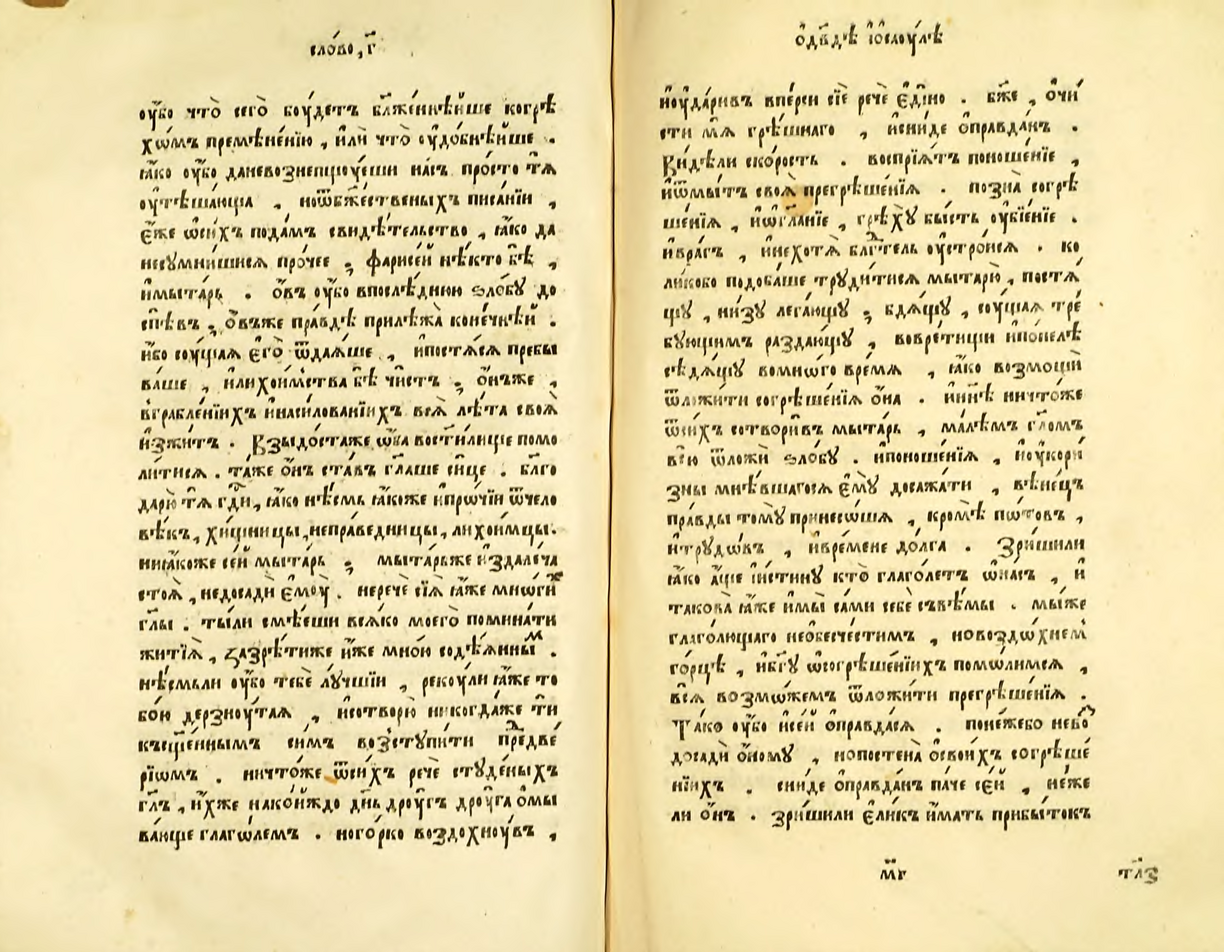 сло́во, г҃
ᲂу҆́бо что̀ сегѡ̀ бꙋ́детъ бл҃же́ннѣйше когрѣ
хѡ́мъ премѣне́нїю, и҆лѝ что̀ ᲂу҆до́бнѣйше.
ꙗ҆́ко ᲂу҆́бо даневознепщꙋ́еши на́съ про́сто тѧ̀
ᲂу҆тѣша́юща, ноѿбже́ственыхъ писа́нїи,
є҆́же ѿси́хъ пода́мъ свидѣ́тельство, ꙗ҆́ко да
несꙋмни́шисѧ про́чее; фарисе́й нѣ́кто бѣ̀,
и҆мыта́рь. ѻ҆́въ ᲂу҆́бо впослѣ́днюю ѕло́бꙋ до
спѣ́въ; ѻ҆́въже пра́вдѣ прилѣжа̀ коне́чнѣй.
и҆́бо сꙋ́щаѧ є҆гѡ̀ ѿдаѧ́ше, и҆постѧ́сѧ пребы
ва́ше, и҆лихои́мства бѣ̀ чи́стъ; ѻ҆́нъже,
вграбле́нїихъ и҆наси́лованїихъ всѧ̀ лѣ́та своѧ̀
и҆зжи́тъ. Взыдо́стаже ѻ҆́ба востили́ще помо
ли́тисѧ. та́же ѻ҆́нъ ста́въ гл҃аше си́це. бл҃го
дарю́ тѧ гдⷭ҇и, ꙗ҆́ко нѣ́смь ꙗ҆́коже и҆про́чїи ѿчело
вѣ́къ, хи́щницы, непра́ведницы, лихои́мцы.
ниꙗ҆́коже се́й мыта́рь; мыта́рьже и҆здале́ча
стоѧ̀, недосадѝ є҆мꙋ̀. неречѐ сїѧ̀ ꙗ҆́же мно́ги
гл҃ы. ты́ли смѣ́еши всѧ́ко моегѡ̀ помина́ти
житїѧ̀, зазрѣ́тиже и҆́же мно́ю содѣ́ѧнныⷨ.
нѣ́смьли ᲂу҆́бо тебѐ лꙋ́чшїи, рекꙋ́ли ꙗ҆́же то
бо́ю дерзнꙋ́таѧ, и҆сотворю̀ никогда́же ти
къще́ннымъ си́мъ возстꙋпи́ти предве́
рїѡмъ. ничто́же ѿси́хъ речѐ стꙋде́ныхъ
гл҃ъ, и҆́хже нако́йждо дн҃ь дрꙋ́гъ дрꙋ́га ѡ҆мы
ва́юще глаго́лемъ. ного́рко воздохнꙋ́въ,
ѻ҆дв҃дѣ і҆ѻ҆саꙋ́лѣ
и҆ᲂу҆да́ривъ впе́рси сїѐ речѐ є҆ди́но. бж҃е, ѡ҆чи́
сти мѧ̀ грѣ́шнаго, и҆сни́де ѡ҆правда́нъ.
Ви́дѣли ско́рость. воспрїѧ́тъ поноше́нїе,
и҆ѡ҆мы́тъ своѧ̀ прегрѣше́нїѧ. позна̀ согрѣ
ше́нїѧ, и҆ѡ҆гла́нїе, грѣхꙋ̀ бы́сть ᲂу҆бїе́нїе.
и҆вра́гъ, и҆нехотѧ̀ бл҃гⷣтель ᲂу҆стро́исѧ. ко
ли́кобо подоба́ше трꙋди́тисѧ мытарю̀, постѧ́
щꙋ, ни́зꙋ лега́ющꙋ; бдѧ́щꙋ, сꙋ́щаѧ тре́
бꙋющимъ раздаю́щꙋ, вовре́тищи и҆по́пелѣ
сѣдѧ́щꙋ вомно́го вре́мѧ, ꙗ҆́ко возмощѝ
ѿложи́ти согрѣше́нїѧ ѻ҆на̀. и҆ни́нѣ ничто́же
ѿси́хъ сотвори́въ мыта́рь, ма́лѣмъ гл҃омъ
всю̀ ѿложѝ ѕло́бꙋ. и҆поноше́нїѧ, и҆ᲂу҆кори́
зны мнѣ́вшагосѧ є҆мꙋ̀ досажа́ти, вѣне́цъ
пра́вды томꙋ̀ принесѡ́шѧ, кро́мѣ по́товъ,
и҆трꙋдѡ́въ, и҆вре́мене до́лга. Зри́шили
ꙗ҆́ко а҆́ще и҆́стинꙋ кто̀ глаго́летъ ѡ҆на́съ, и҆
такова̀ ꙗ҆́же и҆мы̀ са́ми себѐ съвѣ́мы. мы́же
глаго́лющаго необесче́стимъ, новоздохне́мъ
го́рцѣ, и҆бг҃ꙋ ѡ҆согрѣше́нїихъ помо́лимсѧ,
всѧ̀ возмо́жемъ ѿложи́ти прегрѣше́нїѧ.
Та́ко ᲂу҆́бо и҆се́й ѡ҆правда́сѧ. поне́жебо небо
досадѝ ѻ҆́номꙋ, нопостена̀ ѡ҆свои́хъ согрѣше́
нїихъ. сни́де ѡ҆правда́нъ па́че се́й, не́же
ли ѻ҆́нъ. зри́шили є҆ли́къ и҆́мать прибы́токъ
м҃г
тл҃з